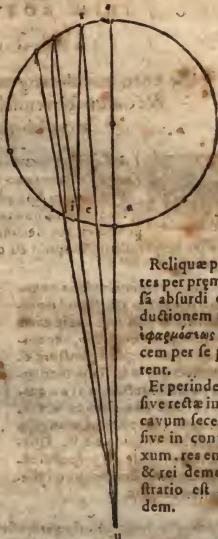 Reliquæ p
tes per prem
sâ absurdi
ductionem
ἐφαρμόσεως
cem per se p
tent.
Et perinde
sive rectæ in
cavum sece
sive in con
xum. res en
& rei demo
stratio est
dem.
u